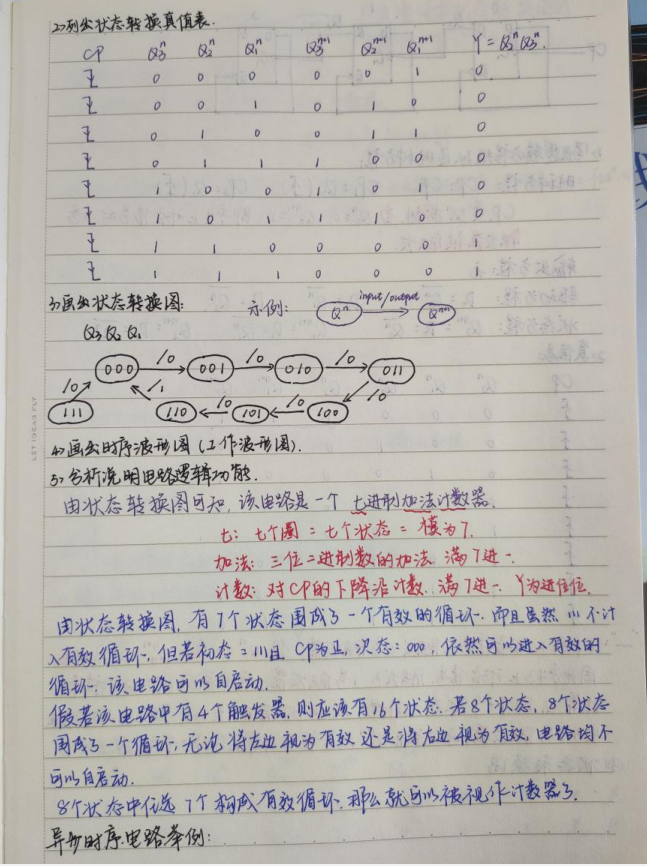 2>列出状态转换真值表.
CP Q₃ⁿ Q₂ⁿ Q₁ⁿ Q₃ⁿ⁺¹ Q₂ⁿ⁺¹ Q₁ⁿ⁺¹ Y = Q₃ⁿQ₂ⁿ.
0 0 0 0 0 1 0
0 0 1 0 1 0 0
0 1 0 0 1 1 0
0 1 1 1 0 0 0
1 0 0 1 0 1 0
1 0 1 1 1 0 0
1 1 0 0 0 0 1
1 1 1 0 0 0 1
3>画出状态转换图: 示例: Qⁿ input/output Qⁿ⁺¹
Q₃ Q₂ Q₁
000 /0 001 /0 010 /0 011
/0 /1 /0
111 110 /0 101 /0 100
4>画出时序波形图 (工作波形图).
5>分析说明电路逻辑功能.
由状态转换图可知, 该电路是一个 七进制加法计数器.
七: 七个圈 = 七个状态 = 模为7.
加法: 三位二进制数的加法 满7进一.
计数: 对CP的下降沿计数. 满7进一. Y为进位位.
由状态转换图, 有7个状态围成了一个有效的循环. 而且虽然 111 不计
入有效循环, 但若初态=111且 CP为正, 次态: 000, 依然可以进入有效的
循环. 该电路可以自启动.
假若该电路中有4个触发器, 则应该有16个状态. 若8个状态, 8个状态
围成了一个循环, 无论将左边视为有效 还是将右边视为有效, 电路均不
可以自启动.
8个状态中任选7个构成有效循环. 那么就可以被视作计数器了.
异步时序电路条例:
LET IDEAS FLY